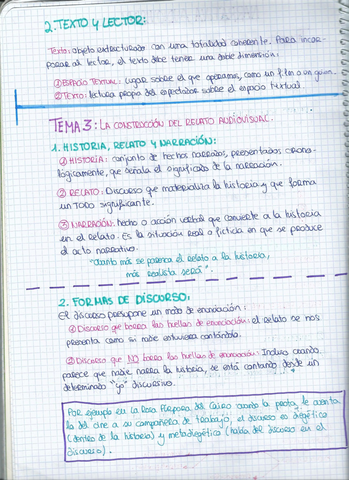 2. TEXTO Y LECTOR:
Texto: objeto estructurado con una totalidad coherente. Para incor-
porar al lector, el texto debe tener una doble dimensión:
① ESPACIO TEXTUAL: Lugar sobre el que operamos, como un film o un guion.
② TEXTO: lectura propia del espectador sobre el espacio textual.
TEMA 3: LA CONSTRUCCIÓN DEL RELATO AUDIOVISUAL.
1. HISTORIA, RELATO Y NARRACIÓN:
① HISTORIA: conjunto de hechos narrados, presentados crono-
lógicamente, que señala el significado de la narración.
② RELATO: Discurso que materializa la historia y que forma
un TODO significante.
③ NARRACIÓN: Hecho o acción verbal que convierte a la historia
en el relato. Es la situación real o ficticia en que se produce
el acto narrativo.
"Cuanto más se parezca el relato a la historia,
más realista será".
2. FORMAS DE DISCURSO:
El discurso presupone un modo de enunciación:
① Discurso que borra las huellas de enunciación: el relato se nos
presenta como si nadie estuviera contándolo.
② Discurso que NO borra las huellas de enunciación: Incluso cuando
parece que nadie narra la historia, se está contando desde un
determinado "yo" discursivo.
Por ejemplo en La Rosa Púrpura del Cairo cuando la prota, le cuenta
la del cine a su compañera de trabajo, el discurso es diegético
(dentro de la historia) y metadiegético (habla del discurso en el
discurso).